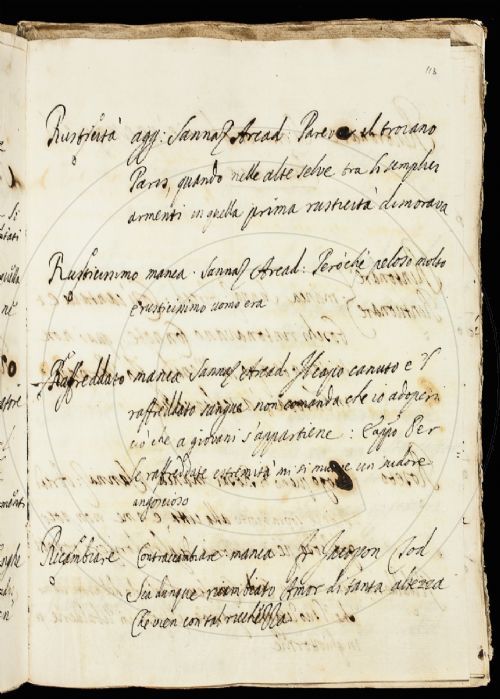 113
Rusticità agg: Sannaz Arcad: Pareva il troiano
Paris, quando nelle alte selve tra li semplici
armenti in quella prima rusticità dimorava
Rusticissimo manca. Sannaz Arcad: Però che peloso molto
e rusticissimo uomo era
Raffreddato manca Sannaz Arcad. Il capo canuto e 'l
raffreddato sangue non comanda che io adoperi
ciò che a giovani s'appartiene: Per
le raffreddate estremità mi si muove un sudore
angoscioso
Ricambiare Contraccambiare manca Fr Jacopon Tod
Sia dunque ricambiato Amor di tanta altezza
Che vien con tal